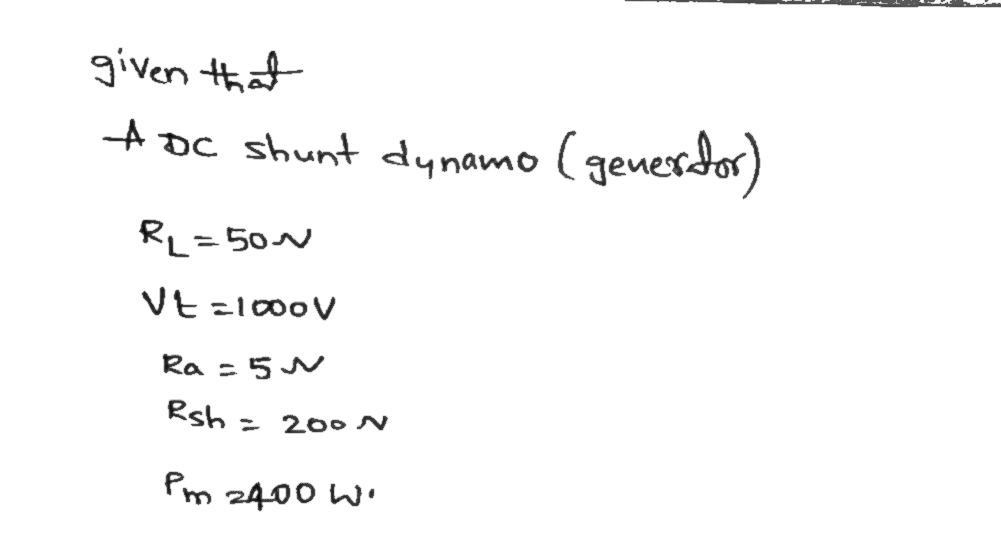 given that
A DC shunt dynamo (generator)
RL = 50 Ω
Vt = 1000V
Ra = 5 Ω
Rsh = 200 Ω
Pm = 400 W.